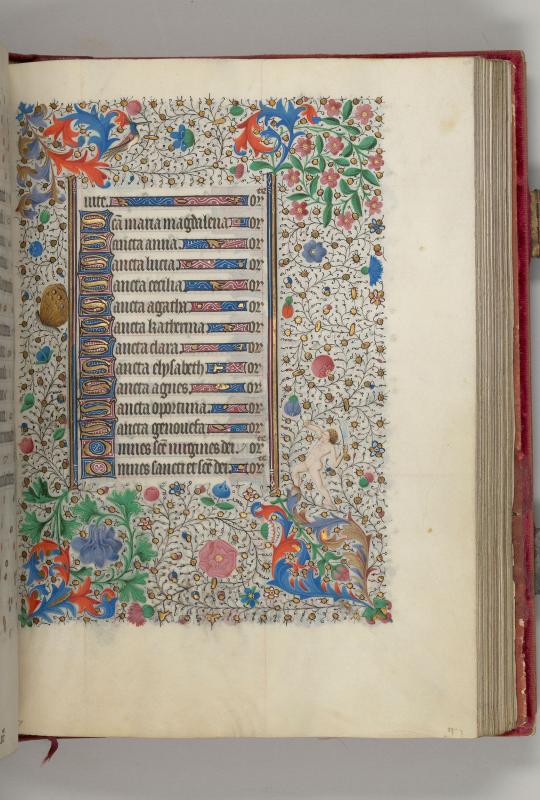 uite. or
Scā maria magdalena or
Sancta anna or
Sancta lucia or
Sancta cecilia or
Sancta agatha or
Sancta katherina or
Sancta clara or
Sancta elysabeth or
Sancta agnes or
Sancta oportuna or
Sancta genouefa or
Omnes scē uirgines dei or
Omnes sancti et scē dei or